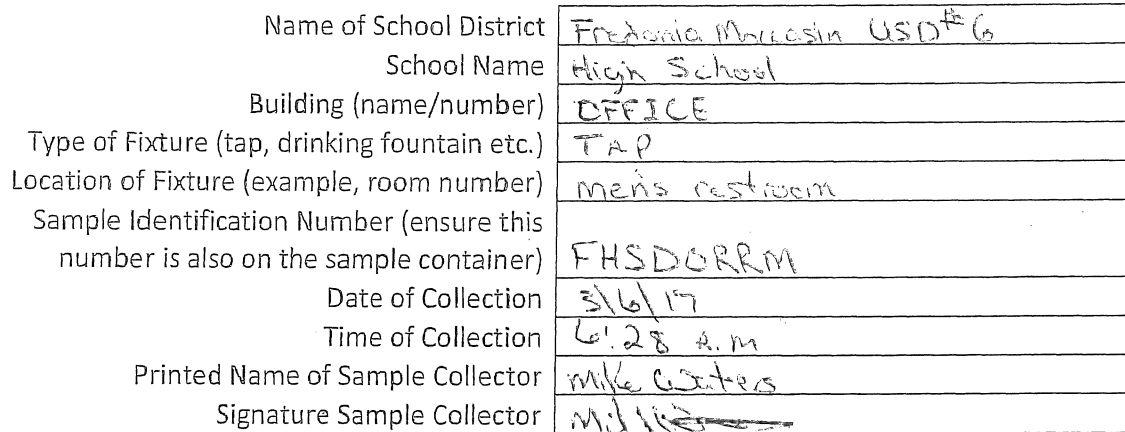 Name of School District Fredonia Moccasin USD#6
School Name High School
Building (name/number) OFFICE
Type of Fixture (tap, drinking fountain etc.) TAP
Location of Fixture (example, room number) men's restroom
Sample Identification Number (ensure this
number is also on the sample container) FHSDORRM
Date of Collection 3/6/17
Time of Collection 6:28 A.M
Printed Name of Sample Collector Mike Waters
Signature Sample Collector